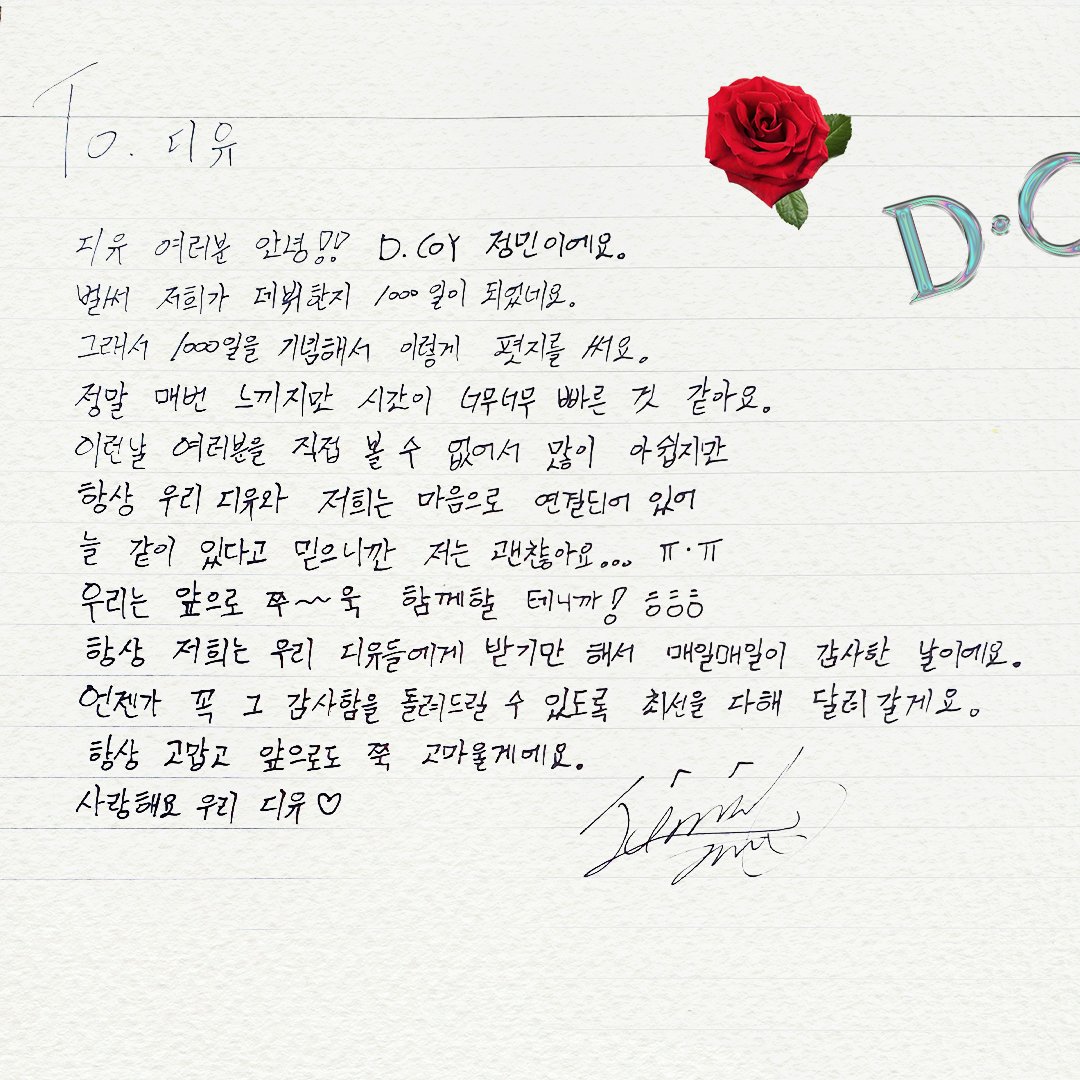 To. 디유
D·C
디유 여러분 안녕!! D.COY 정민이에요.
벌써 저희가 데뷔한지 1000일이 되었네요.
그래서 1000일을 기념해서 이렇게 편지를 써요.
정말 매번 느끼지만 시간이 너무너무 빠른 것 같아요.
이런날 여러분을 직접 볼 수 없어서 많이 아쉽지만
항상 우리 디유와 저희는 마음으로 연결되어 있어
늘 같이 있다고 믿으니깐 저는 괜찮아요... ㅠ.ㅠ
우리는 앞으로 쭈~~욱 함께할 테니까! ㅎㅎㅎ
항상 저희는 우리 디유들에게 받기만 해서 매일매일이 감사한 날이에요.
언젠가 꼭 그 감사함을 돌려드릴 수 있도록 최선을 다해 달려갈게요.
항상 고맙고 앞으로도 쭉 고마울게에요.
사랑해요 우리 디유♡